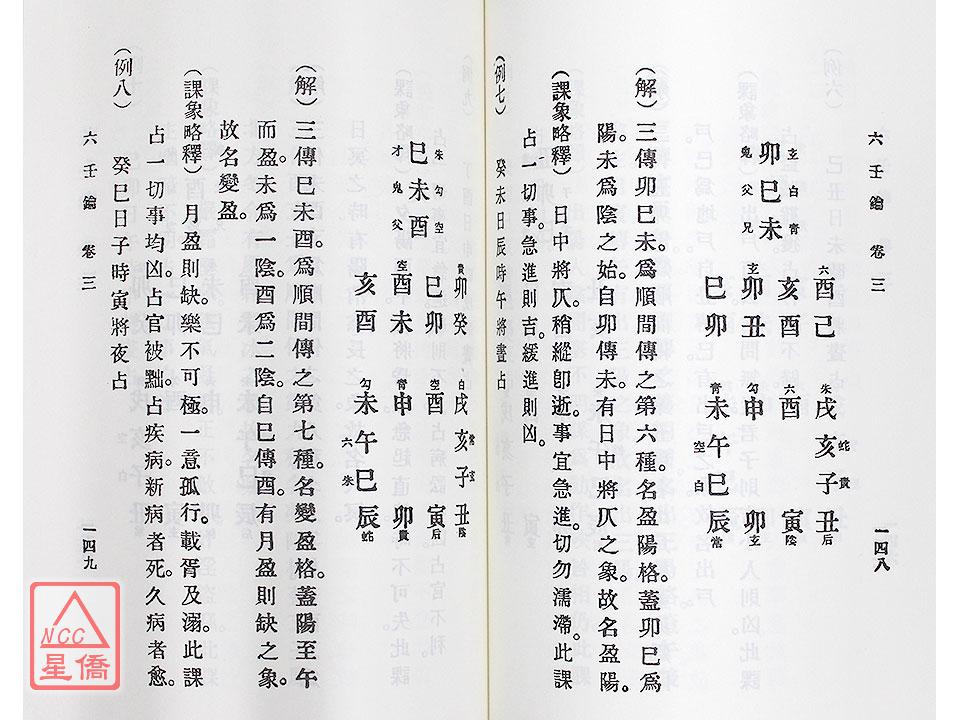 六壬鑰 卷三
一四八
玄 白 青
卯巳未
鬼 父 兄
六
酉己
亥酉
玄
卯丑
巳卯
朱 蛇 貴 后
戌亥子丑
六 陰
酉 寅
勾 玄
申 卯
青 空 白 常
未午巳辰
（解）三傳卯巳未。爲順間傳之第六種。名盈陽格。蓋卯巳爲
陽。未爲陰之始。自卯傳未。有日中將仄之象。故名盈陽。
（課象略釋）日中將仄。稍縱卽逝。事宜急進。切勿濡滯。此課
占一切事。急進則吉。緩進則凶。
（例七）癸未日辰時午將晝占
朱 勾 空
巳未酉
才 鬼 父
貴
卯癸
巳卯
空
酉未
亥酉
白 常 玄 陰
戌亥子丑
空 后
酉 寅
青 貴
申 卯
勾 六 朱 蛇
未午巳辰
（解）三傳巳未酉。爲順間傳之第七種。名變盈格。蓋陽至午
而盈。未爲一陰。酉爲二陰。自巳傳酉。有月盈則缺之象。
故名變盈。
（課象略釋）月盈則缺。樂不可極。一意孤行。載胥及溺。此課
占一切事均凶。占官被黜。占疾病。新病者死。久病者愈。
（例八）癸巳日子時寅將夜占
六壬鑰 卷三
一四九
NCC
星僑